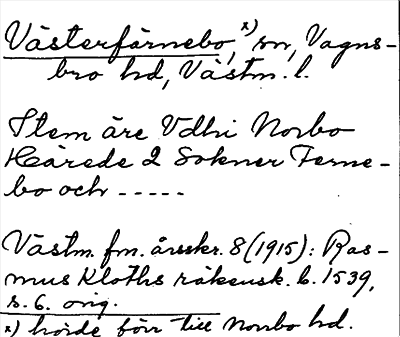 Västerfärnebo, x) sn, Vagns-
bro hd, Västm. l.
Item äre Vdhi Norbo
Härede 2 Sokner Ferne-
bo och -----
Västm. fm. årsskr. 8 (1915): Ras-
mus Kloths räkensk. b. 1539,
s. 6. orig.
x) hörde förr till Norrbo hd.